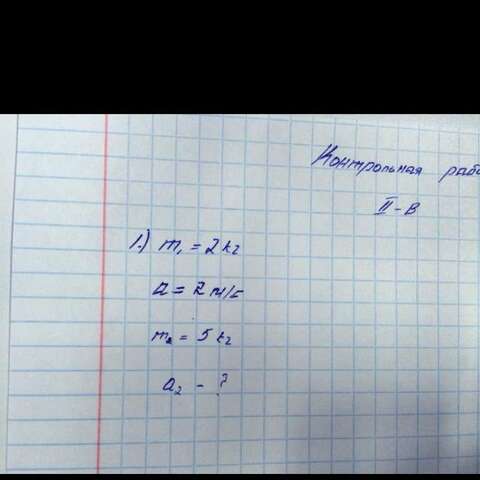 Контрольная рабо
III-В
1.) m₁ = 2 кг
a = 2 м/с
m₂ = 5 кг
a₂ - ?